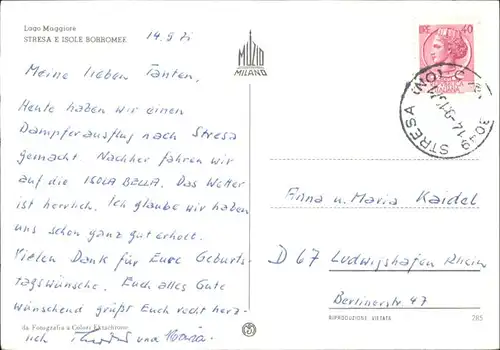 Lago Maggiore
STRESA E ISOLE BORROMEE
14.9.71
MUZIO
MILANO
Meine lieben Tanten,
Heute haben wir einen
Dampferausflug nach Stresa
gemacht. Nachher fahren wir
auf die ISOLA BELLA. Das Wetter
ist herrlich. Ich glaube wir haben
uns schon ganz gut erholt.
Vielen Dank für Eure Geburts-
tagswünsche. Euch alles Gute
wünschend grüßt Euch recht herz-
lich und
da Fotografia a Colori Ektachrome
40
28049 STRESA
Anna u. Maria Kaidel
D 67 Ludwigshafen Rhein
Berlinerstr 47
RIPRODUZIONE VIETATA
285